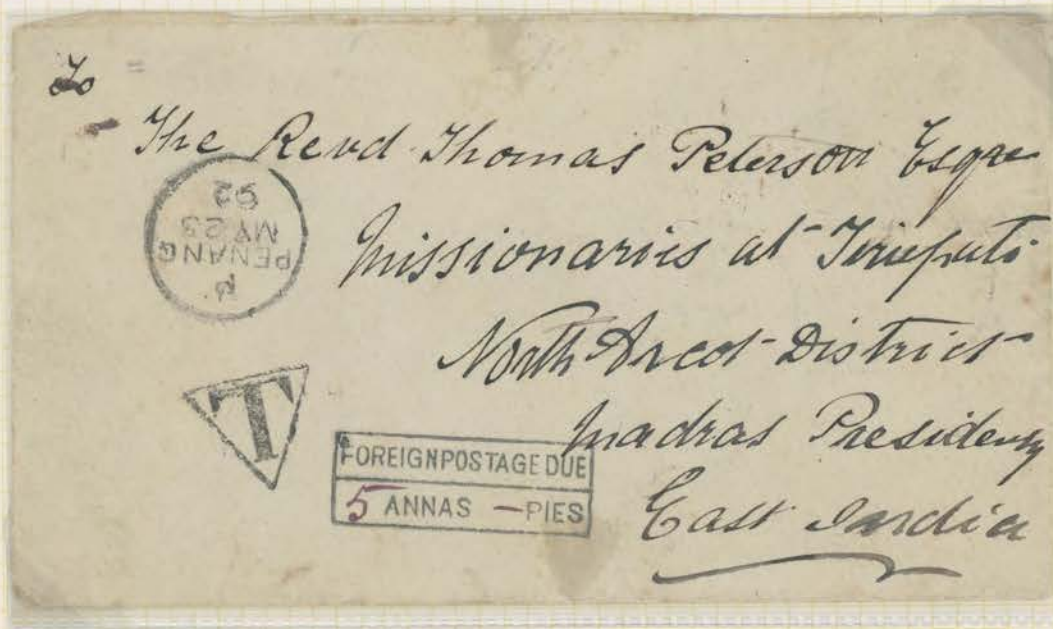 To
The Revd Thomas Peterson Esqre
Missionaries at Tirupati
North Arcot District
Madras Presidency
East India
P
PENANG
MY 23
92
T
FOREIGN POSTAGE DUE
5 ANNAS — PIES